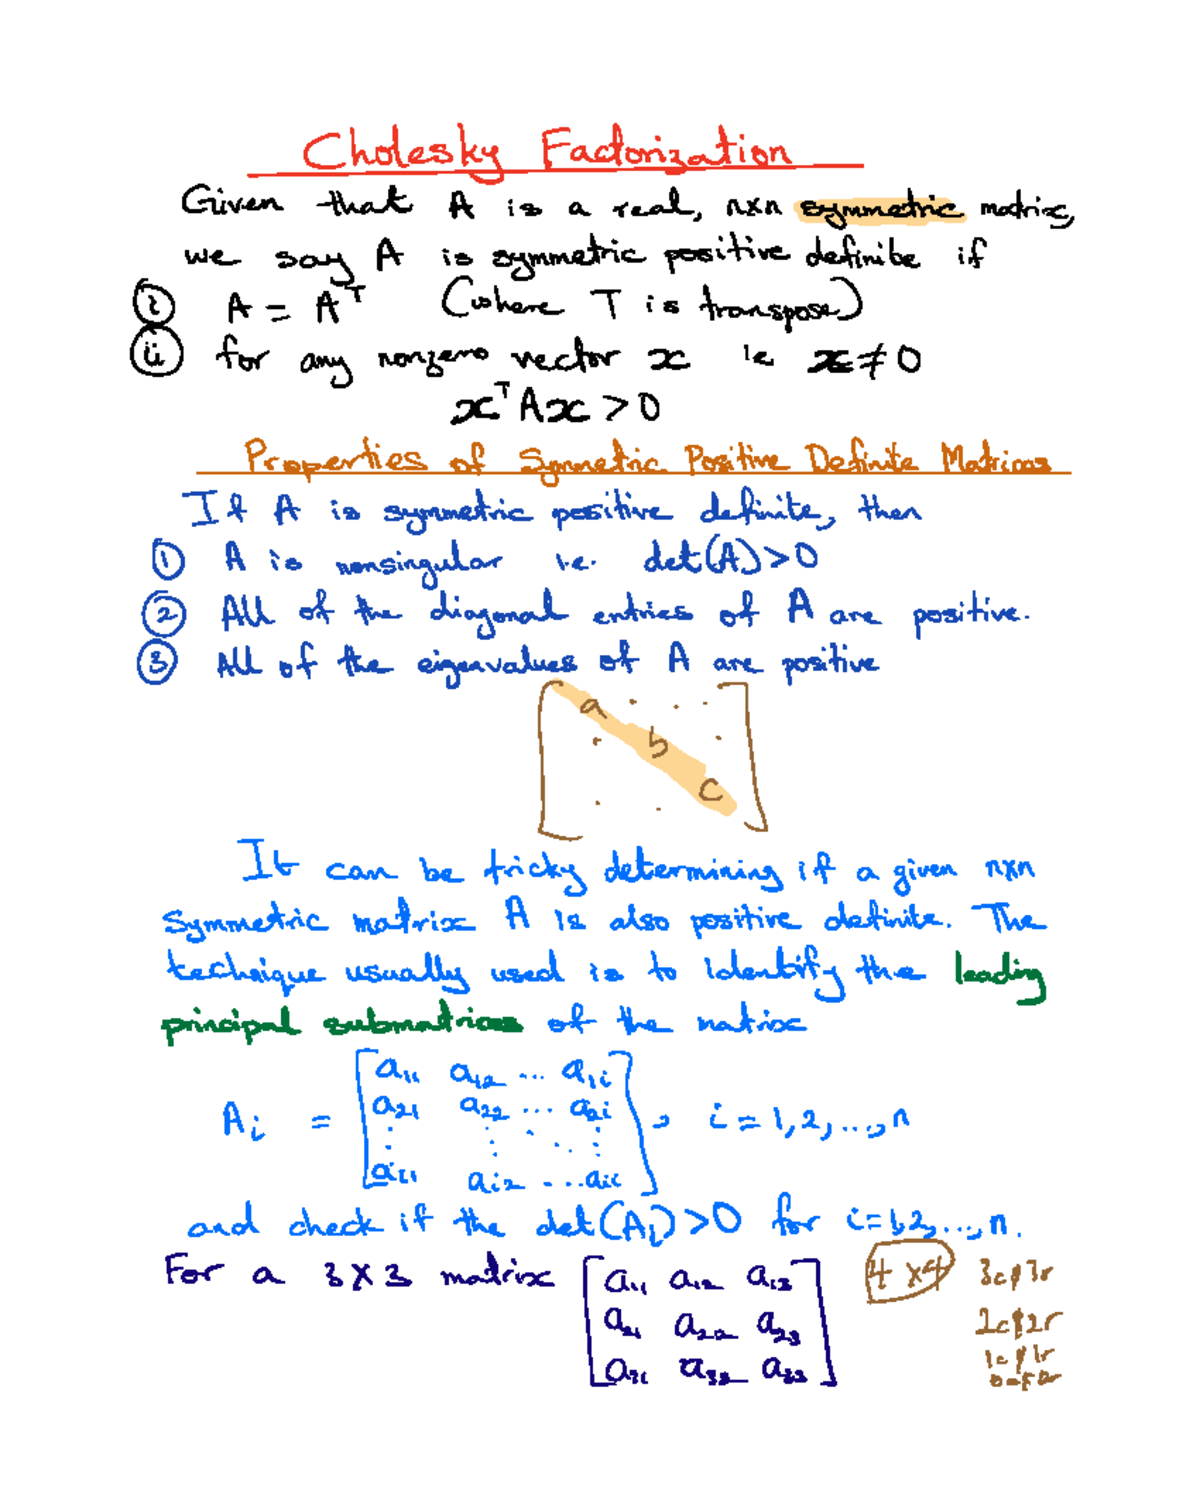 Cholesky Factorization
Given that A is a real, n×n symmetric matrix,
we say A is symmetric positive definite if
(i) A = Aᵀ (where T is transpose)
(ii) for any nonzero vector x ie x ≠ 0
xᵀAx > 0
Properties of Symmetric Positive Definite Matrices
If A is symmetric positive definite, then
① A is nonsingular i.e. det(A) > 0
② All of the diagonal entries of A are positive.
③ All of the eigenvalues of A are positive
[ a . . .
. b .
. . c ]
It can be tricky determining if a given n×n
Symmetric matrix A is also positive definite. The
technique usually used is to identify the leading
principal submatrices of the matrix
a₁₁ a₁₂ ... a₁ᵢ
Aᵢ = [ a₂₁ a₂₂ ... a₂ᵢ ], i = 1,2,...,n
⋮ ⋮ ⋱ ⋮
aᵢ₁ aᵢ₂ ... aᵢᵢ
and check if the det(Aᵢ) > 0 for i=1,2,...,n.
For a 3×3 matrix [ a₁₁ a₁₂ a₁₃ 4×4 3c/3r
a₂₁ a₂₂ a₂₃ 2c/2r
a₃₁ a₃₂ a₃₃ ] 1c/1r